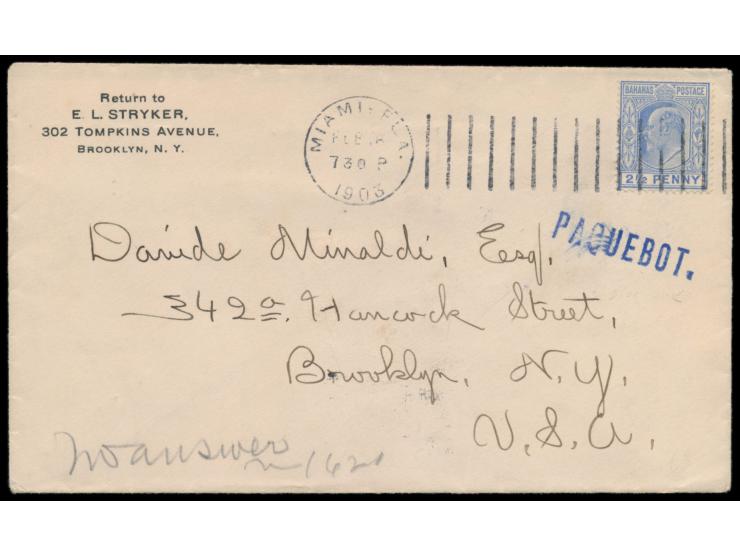 Return to
E. L. STRYKER,
302 TOMPKINS AVENUE,
BROOKLYN, N. Y.
MIAMI, FLA.
FEB
730 P
1903
BAHAMAS POSTAGE
2½ PENNY
PAQUEBOT.
Davide Minaldi, Esq.
342a. Hancock Street,
Brooklyn, N. Y.
U. S. A.
No answer